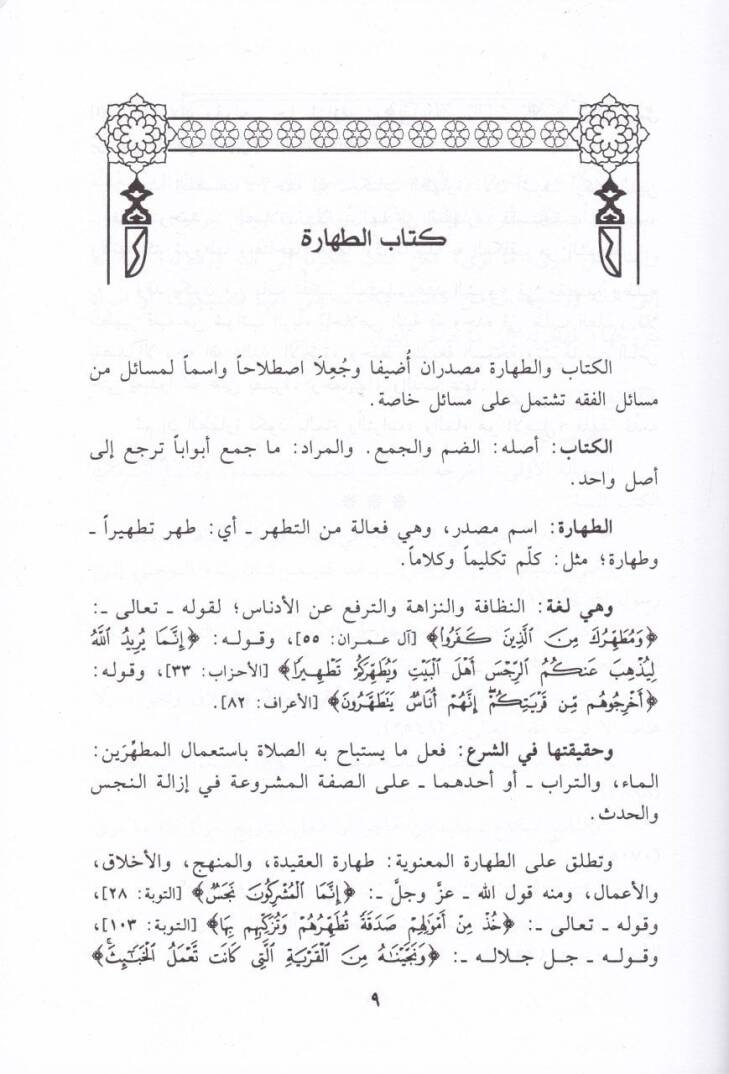 كتاب الطهارة
الكتاب والطهارة مصدران أُضيفا وجُعِلَا اصطلاحاً واسماً لمسائل من
مسائل الفقه تشتمل على مسائل خاصة.
الكتاب: أصله: الضم والجمع. والمراد: ما جمع أبواباً ترجع إلى
أصل واحد.
الطهارة: اسم مصدر، وهي فعالة من التطهر ـ أي: طهر تطهيراً ـ
وطهارة؛ مثل: كلّم تكليماً وكلاماً.
وهي لغة: النظافة والنزاهة والترفع عن الأدناس؛ لقوله ـ تعالى ـ:
﴿وَمُطَهِّرُكَ مِنَ ٱلَّذِينَ كَفَرُوا۟﴾ [آل عمران: ٥٥]، وقوله: ﴿إِنَّمَا يُرِيدُ ٱللَّهُ
لِيُذْهِبَ عَنكُمُ ٱلرِّجْسَ أَهْلَ ٱلْبَيْتِ وَيُطَهِّرَكُمْ تَطْهِيرًا﴾ [الأحزاب: ٣٣]، وقوله:
﴿أَخْرِجُوهُم مِّن قَرْيَتِكُمْ إِنَّهُمْ أُنَاسٌ يَتَطَهَّرُونَ﴾ [الأعراف: ٨٢].
وحقيقتها في الشرع: فعل ما يستباح به الصلاة باستعمال المطهِّرَين:
الماء، والتراب ـ أو أحدهما ـ على الصفة المشروعة في إزالة النجس
والحدث.
وتطلق على الطهارة المعنوية: طهارة العقيدة، والمنهج، والأخلاق،
والأعمال، ومنه قول الله ـ عزَّ وجلَّ ـ: ﴿إِنَّمَا ٱلْمُشْرِكُونَ نَجَسٌ﴾ [التوبة: ٢٨]،
وقوله ـ تعالى ـ: ﴿خُذْ مِنْ أَمْوَٰلِهِمْ صَدَقَةً تُطَهِّرُهُمْ وَتُزَكِّيهِم بِهَا﴾ [التوبة: ١٠٣]،
وقوله ـ جل جلاله ـ: ﴿وَنَجَّيْنَٰهُ مِنَ ٱلْقَرْيَةِ ٱلَّتِى كَانَت تَّعْمَلُ ٱلْخَبَٰٓئِثَ﴾
٩